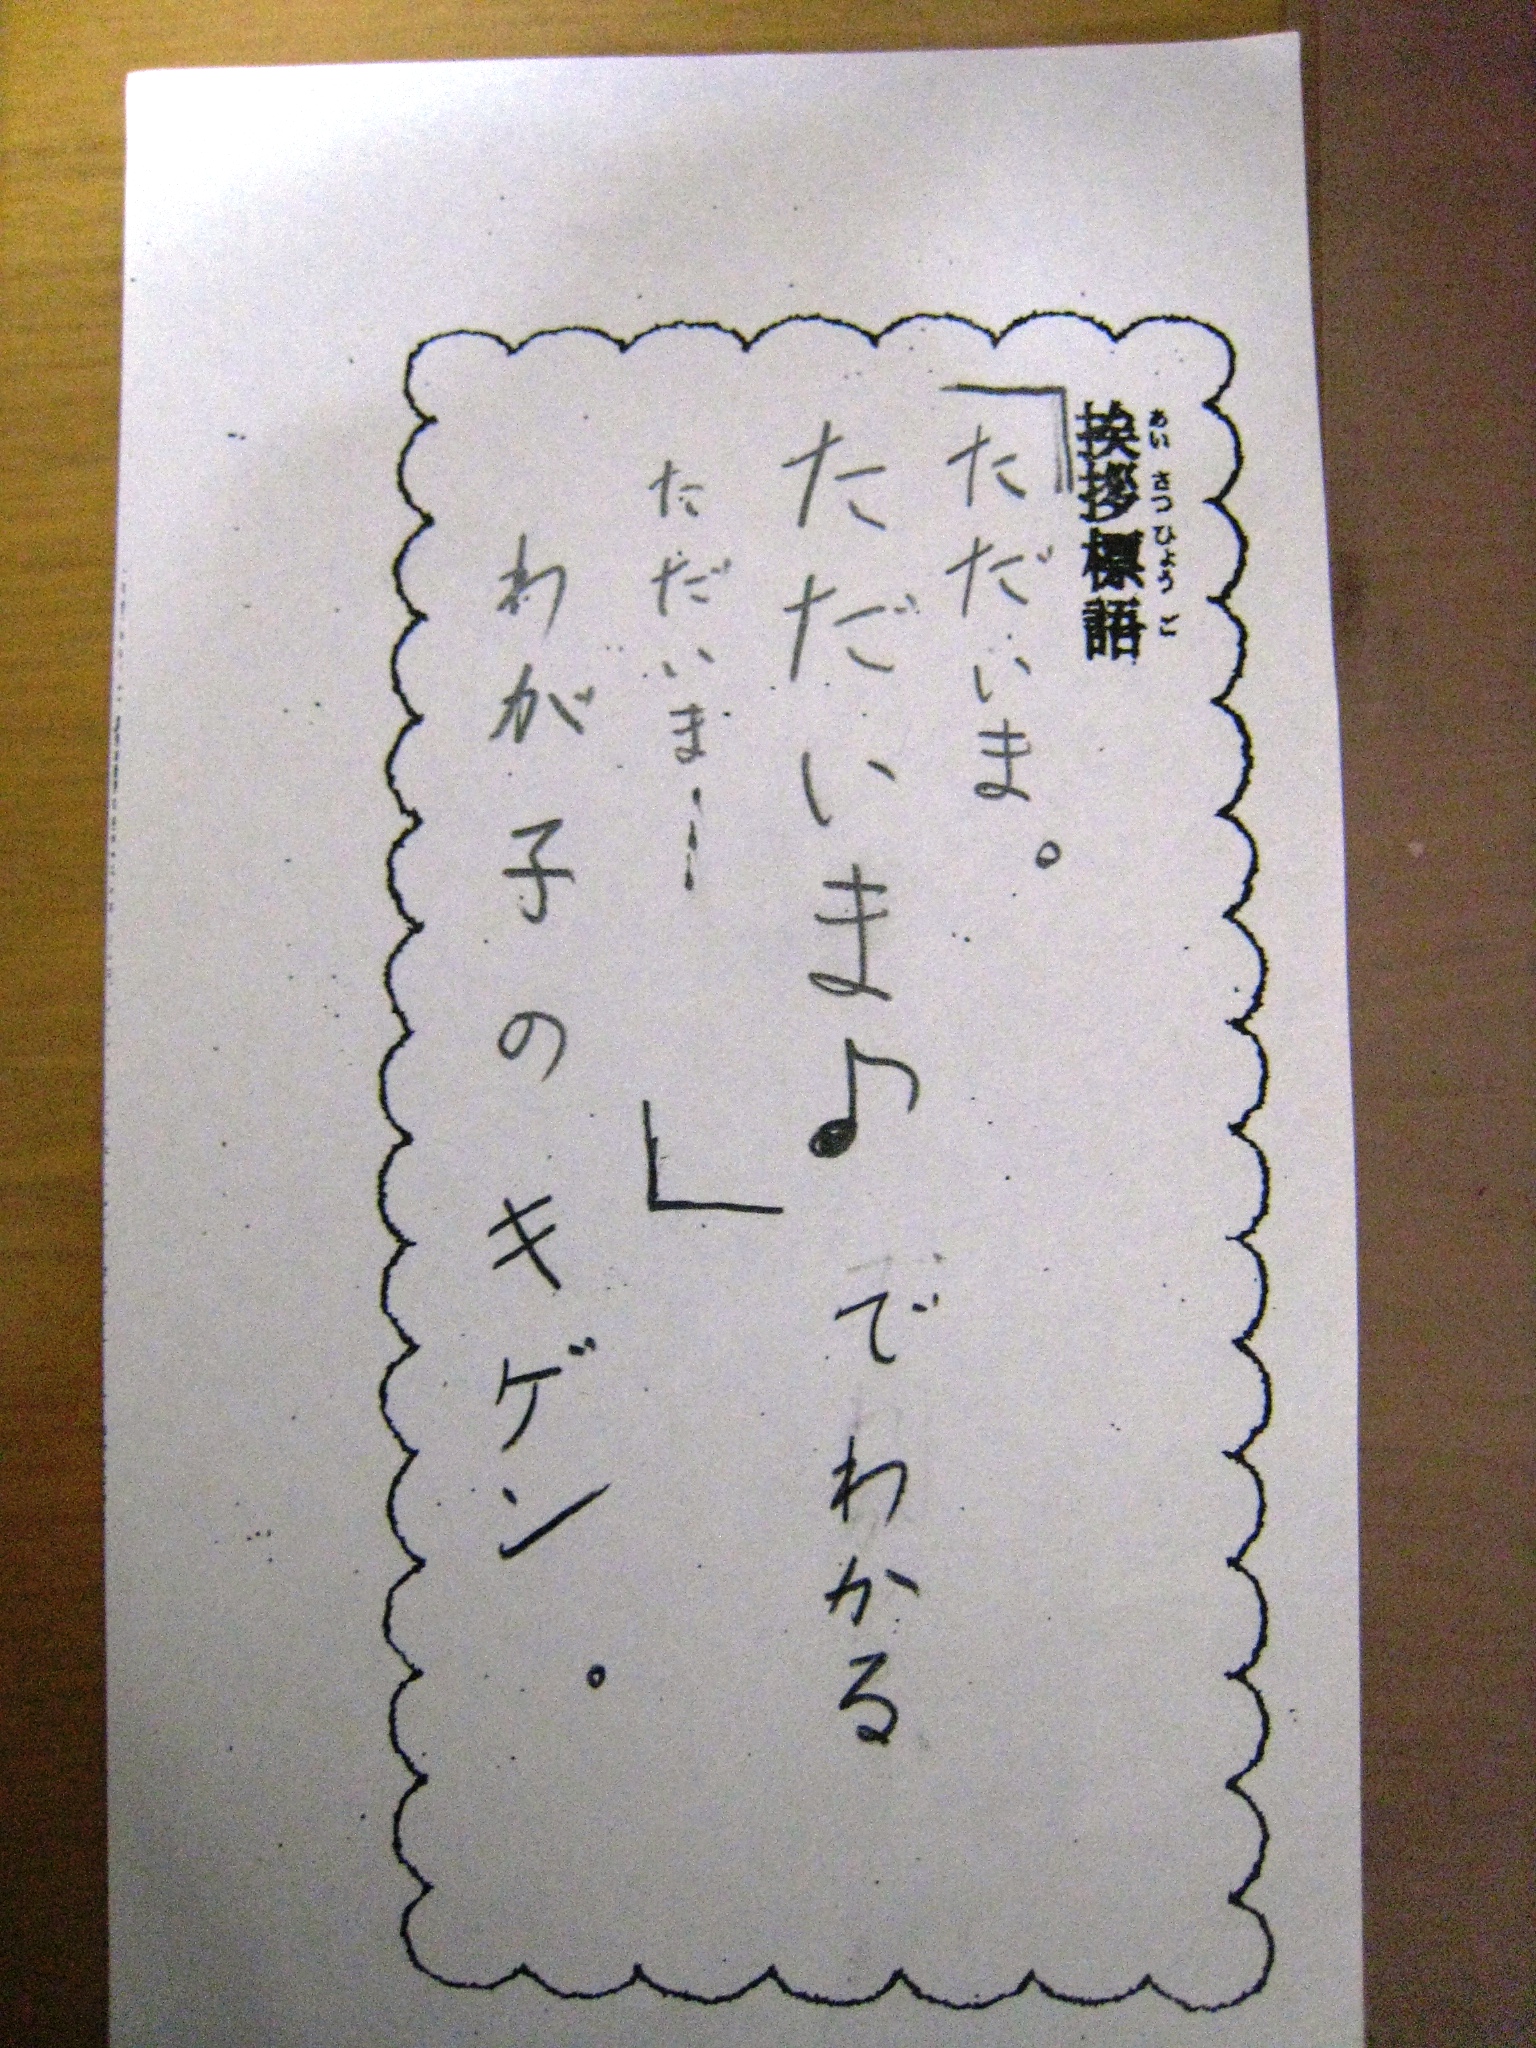 挨拶標語
あいさつひょうご
「ただいま。
ただいま♪
ただいま…」
でわかる
わが子のキゲン。